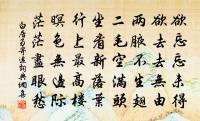 欲忘忘未得
欲去去無由
兩腋不生翅
二毛空滿頭
坐看新落葉
行上最高樓
暝色無邊際
茫茫盡眼愁
白居易寄遠詞典網書